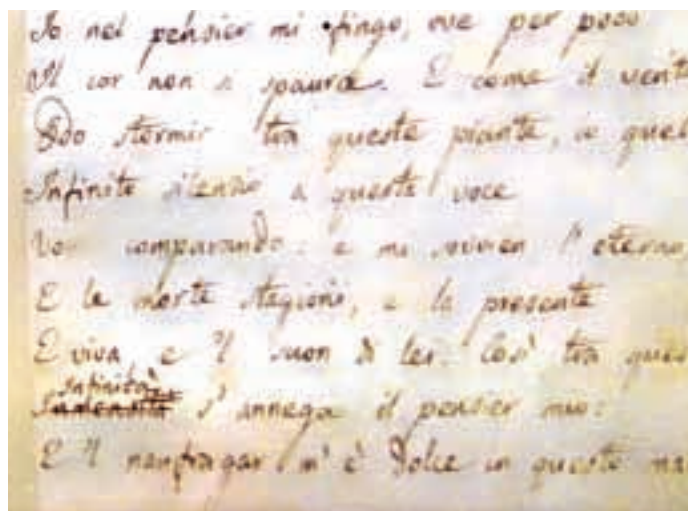 Io nel pensier mi fingo, ove per poco
Il cor non si spaura. E come il vento
Odo stormir tra queste piante, io quel
Infinito silenzio a questa voce
Vo comparando: e mi sovvien l'eterno,
E le morte stagioni, e la presente
E viva, e 'l suon di lei. Così tra ques
Infinità
Immensità s'annega il pensier mio:
E 'l naufragar m'è dolce in questo ma